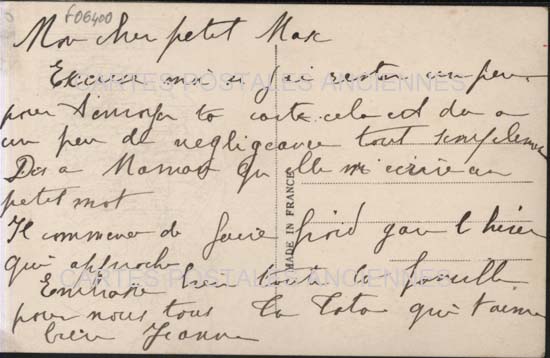 F06400
Mon cher petit Max
Excuse moi si j'ai rester un peu
pour t'envoyer ta carte cela est du a
un peu de negligeance tout simplement
Dis a Maman qu'elle m'ecrive un
petit mot
Il commence de faire froid gare l'hiver
qui approche
Embrasse bien toute la famille
pour nous tous Ta Tata qui t'aime
bien Jeanne
MADE IN FRANCE
CARTES POSTALES ANCIENNES
CARTES POSTALES ANCIENNES